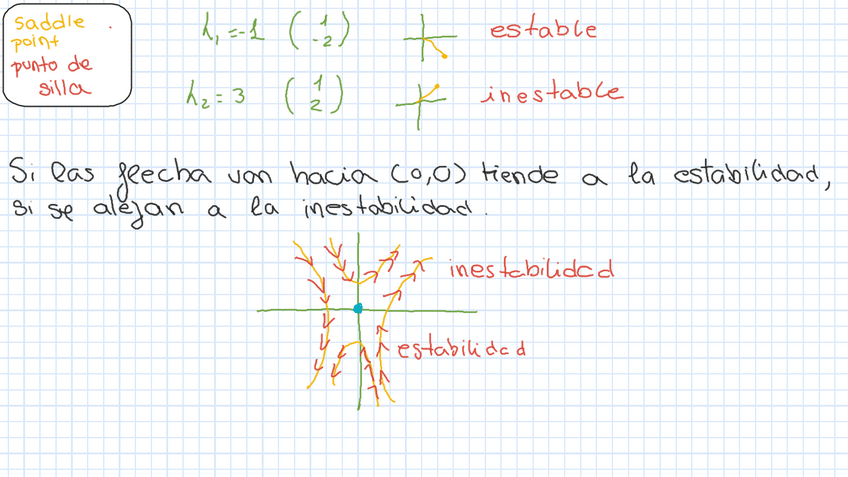 saddle
point
punto de
silla
h₁=-1 (1 -2) estable
h₂=3 (1 2) inestable
Si las flecha van hacia (0,0) tiende a la estabilidad,
si se alejan a la inestabilidad.
inestabilidad
estabilidad